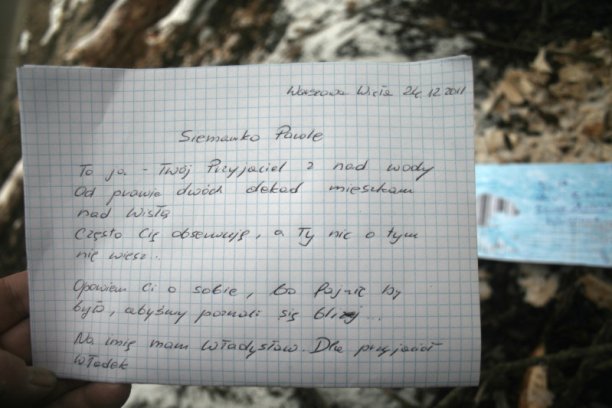 Warszawa Wisła 24.12.2011
Siemanko Pawle
To ja - Twój Przyjaciel z nad wody
Od prawie dwóch dekad mieszkam
nad Wisłą
Często Cię obserwuję, a Ty nic o tym
nie wiesz...
Opowiem Ci o sobie, bo fajnie by
było, abyśmy poznali się bliżej...
Na imię mam Władysław. Dla przyjaciół
Władek